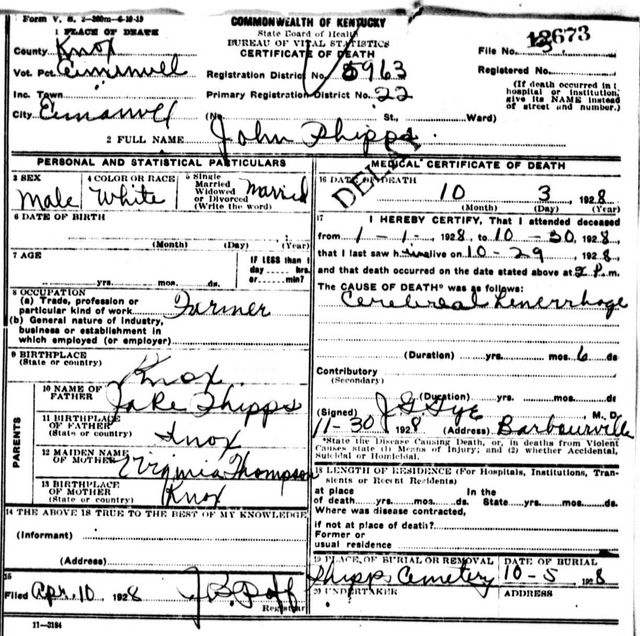 Form V. S. 2-300m-6-19-19
COMMONWEALTH OF KENTUCKY
State Board of Health
BUREAU OF VITAL STATISTICS
CERTIFICATE OF DEATH
1 PLACE OF DEATH
County Knox
File No. 13673
Vot. Pct. Eimanuell
Registration District No. 5963
Registered No.
Inc. Town
Primary Registration District No. 22
(If death occurred in a hospital or institution, give its NAME instead of street and number.)
City Eimanuel (No. St., Ward)
2 FULL NAME John Phipps
PERSONAL AND STATISTICAL PARTICULARS
3 SEX Male
4 COLOR OR RACE White
5 Single Married Widowed or Divorced (Write the word) Married
6 DATE OF BIRTH
(Month) (Day) (Year)
7 AGE
yrs. mos. ds.
IF LESS than 1 day hrs. or min?
8 OCCUPATION
(a) Trade, profession or particular kind of work Farmer
(b) General nature of industry, business or establishment in which employed (or employer)
9 BIRTHPLACE
(State or country) Knox
PARENTS
10 NAME OF FATHER Jake Phipps
11 BIRTHPLACE OF FATHER (State or country) Knox
12 MAIDEN NAME OF MOTHER Virginia Thompson
13 BIRTHPLACE OF MOTHER (State or country) Knox
14 THE ABOVE IS TRUE TO THE BEST OF MY KNOWLEDGE
(Informant)
(Address)
15
Filed Apr. 10 1928 J B Poff
Registrar
11-3184
MEDICAL CERTIFICATE OF DEATH
DELAY
16 DATE OF DEATH
10 3, 1928
(Month) (Day) (Year)
17 I HEREBY CERTIFY, That I attended deceased
from 1-1-, 1928, to 10-30, 1928
that I last saw him alive on 10-29, 1928
and that death occurred on the date stated above at 2 P.m.
The CAUSE OF DEATH* was as follows:
Cerebreal Hemerrhage
(Duration) yrs. mos. 6 ds
Contributory
(Secondary)
(Duration) yrs. mos. ds
(Signed) J G Tye, M. D.
11-30 1928 (Address) Barbourville
*State the Disease Causing Death, or, in deaths from Violent Causes state (1) Means of Injury; and (2) whether Accidental, Suicidal or Homicidal.
18 LENGTH OF RESIDENCE (For Hospitals, Institutions, Transients or Recent Residents)
at place of death yrs. mos. ds. In the State yrs. mos. ds.
Where was disease contracted,
if not at place of death?
Former or usual residence
19 PLACE OF BURIAL OR REMOVAL Phipps Cemetery
DATE OF BURIAL 10-5, 1928
20 UNDERTAKER
ADDRESS